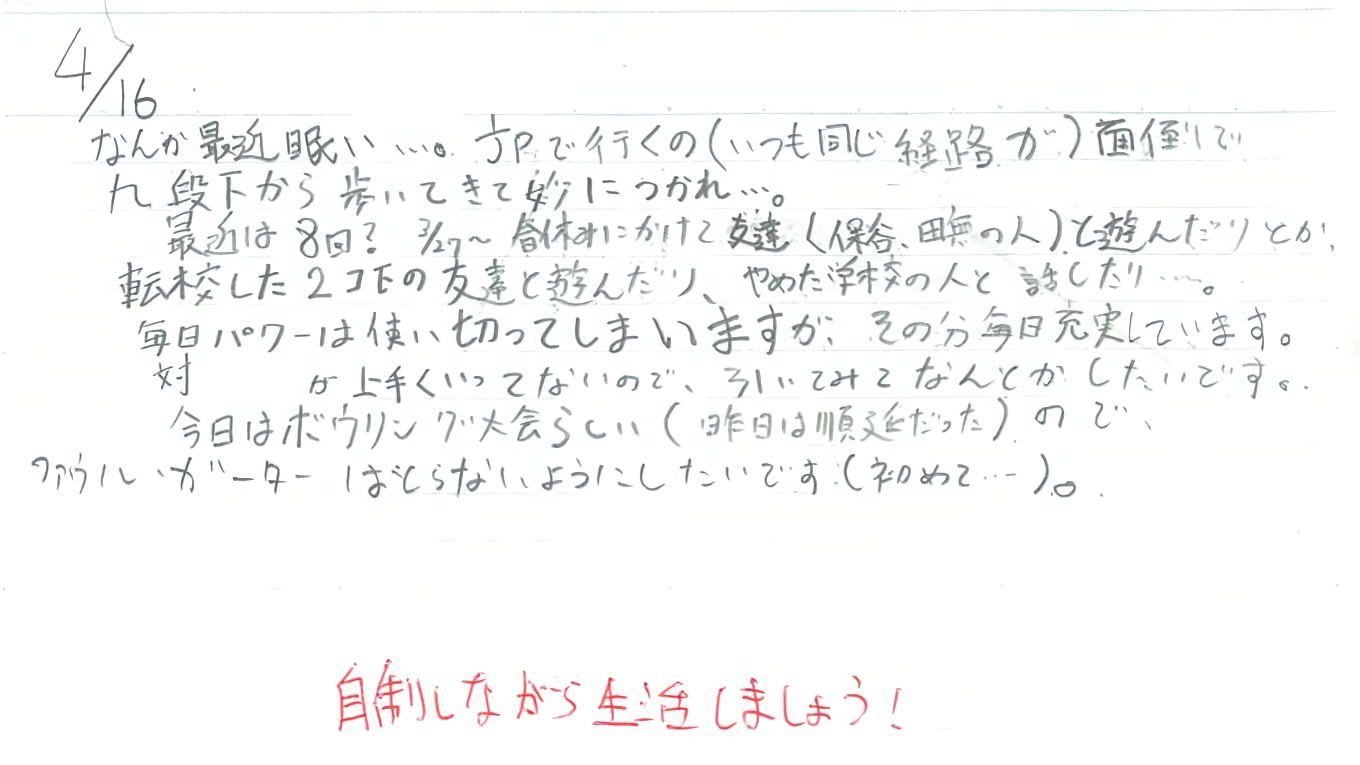 4/16
なんか最近眠い…。JRで行くの(いつも同じ経路が)面倒で
九段下から歩いてきて妙につかれ…。
最近は8回? 3/27〜春休みにかけて友達(保谷、田無の人)と遊んだりとか、
転校した2コ下の友達と遊んだり、やめた学校の人と話したり…。
毎日パワーは使い切ってしまいますが、その分毎日充実しています。
対 が上手くいってないので、引いてみてなんとかしたいです。
今日はボウリング大会らしい(昨日は順延だった)ので、
ファウル・ガーターはとらないようにしたいです(初めて…)。
自制しながら生活しましょう!